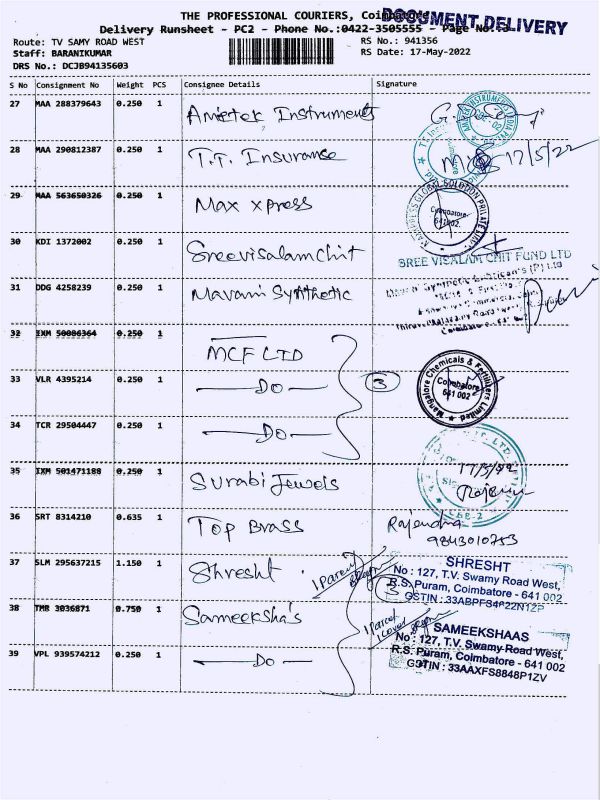 THE PROFESSIONAL COURIERS, Coimbatore
DOCUMENT DELIVERY
Delivery Runsheet - PC2 - Phone No.:0422-3505555 - Page No.:3
Route: TV SAMY ROAD WEST
RS No.: 941356
Staff: BARANIKUMAR
RS Date: 17-May-2022
DRS No.: DCJB94135603
S No Consignment No Weight PCS Consignee Details Signature
27 MAA 288379643 0.250 1 Ametek Instruments
28 MAA 290812387 0.250 1 T.T. Insurance 17/5/22
29 MAA 563650326 0.250 1 Max xpress
Coimbatore
641 002.
30 KDI 1372002 0.250 1 Sreevisalamchit
SREE VISALAM CHIT FUND LTD
31 DDG 4258239 0.250 1 Mavani Synthetic
32 IXM 50086364 0.250 1 MCF LTD
33 VLR 4395214 0.250 1 Do 3
Mangalore Chemicals & Fertilizers Limited
Coimbatore
641 002
34 TCR 29504447 0.250 1 Do
35 IXM 501471188 0.250 1 Surabi Jewels 17/5/22
36 SRT 8314210 0.635 1 Top Brass Rajendra
9843010753
37 SLM 295637215 1.150 1 Shresht 1 Parcel
SHRESHT
No : 127, T.V. Swamy Road West,
R.S. Puram, Coimbatore - 641 002
GSTIN :
38 TMR 3036871 0.750 1 Sameeksha's 1 Parcel
SAMEEKSHAAS
No : 127, T.V. Swamy Road West,
R.S. Puram, Coimbatore - 641 002
GSTIN : 33AAXFS8848P1ZV
39 VPL 939574212 0.250 1 Do